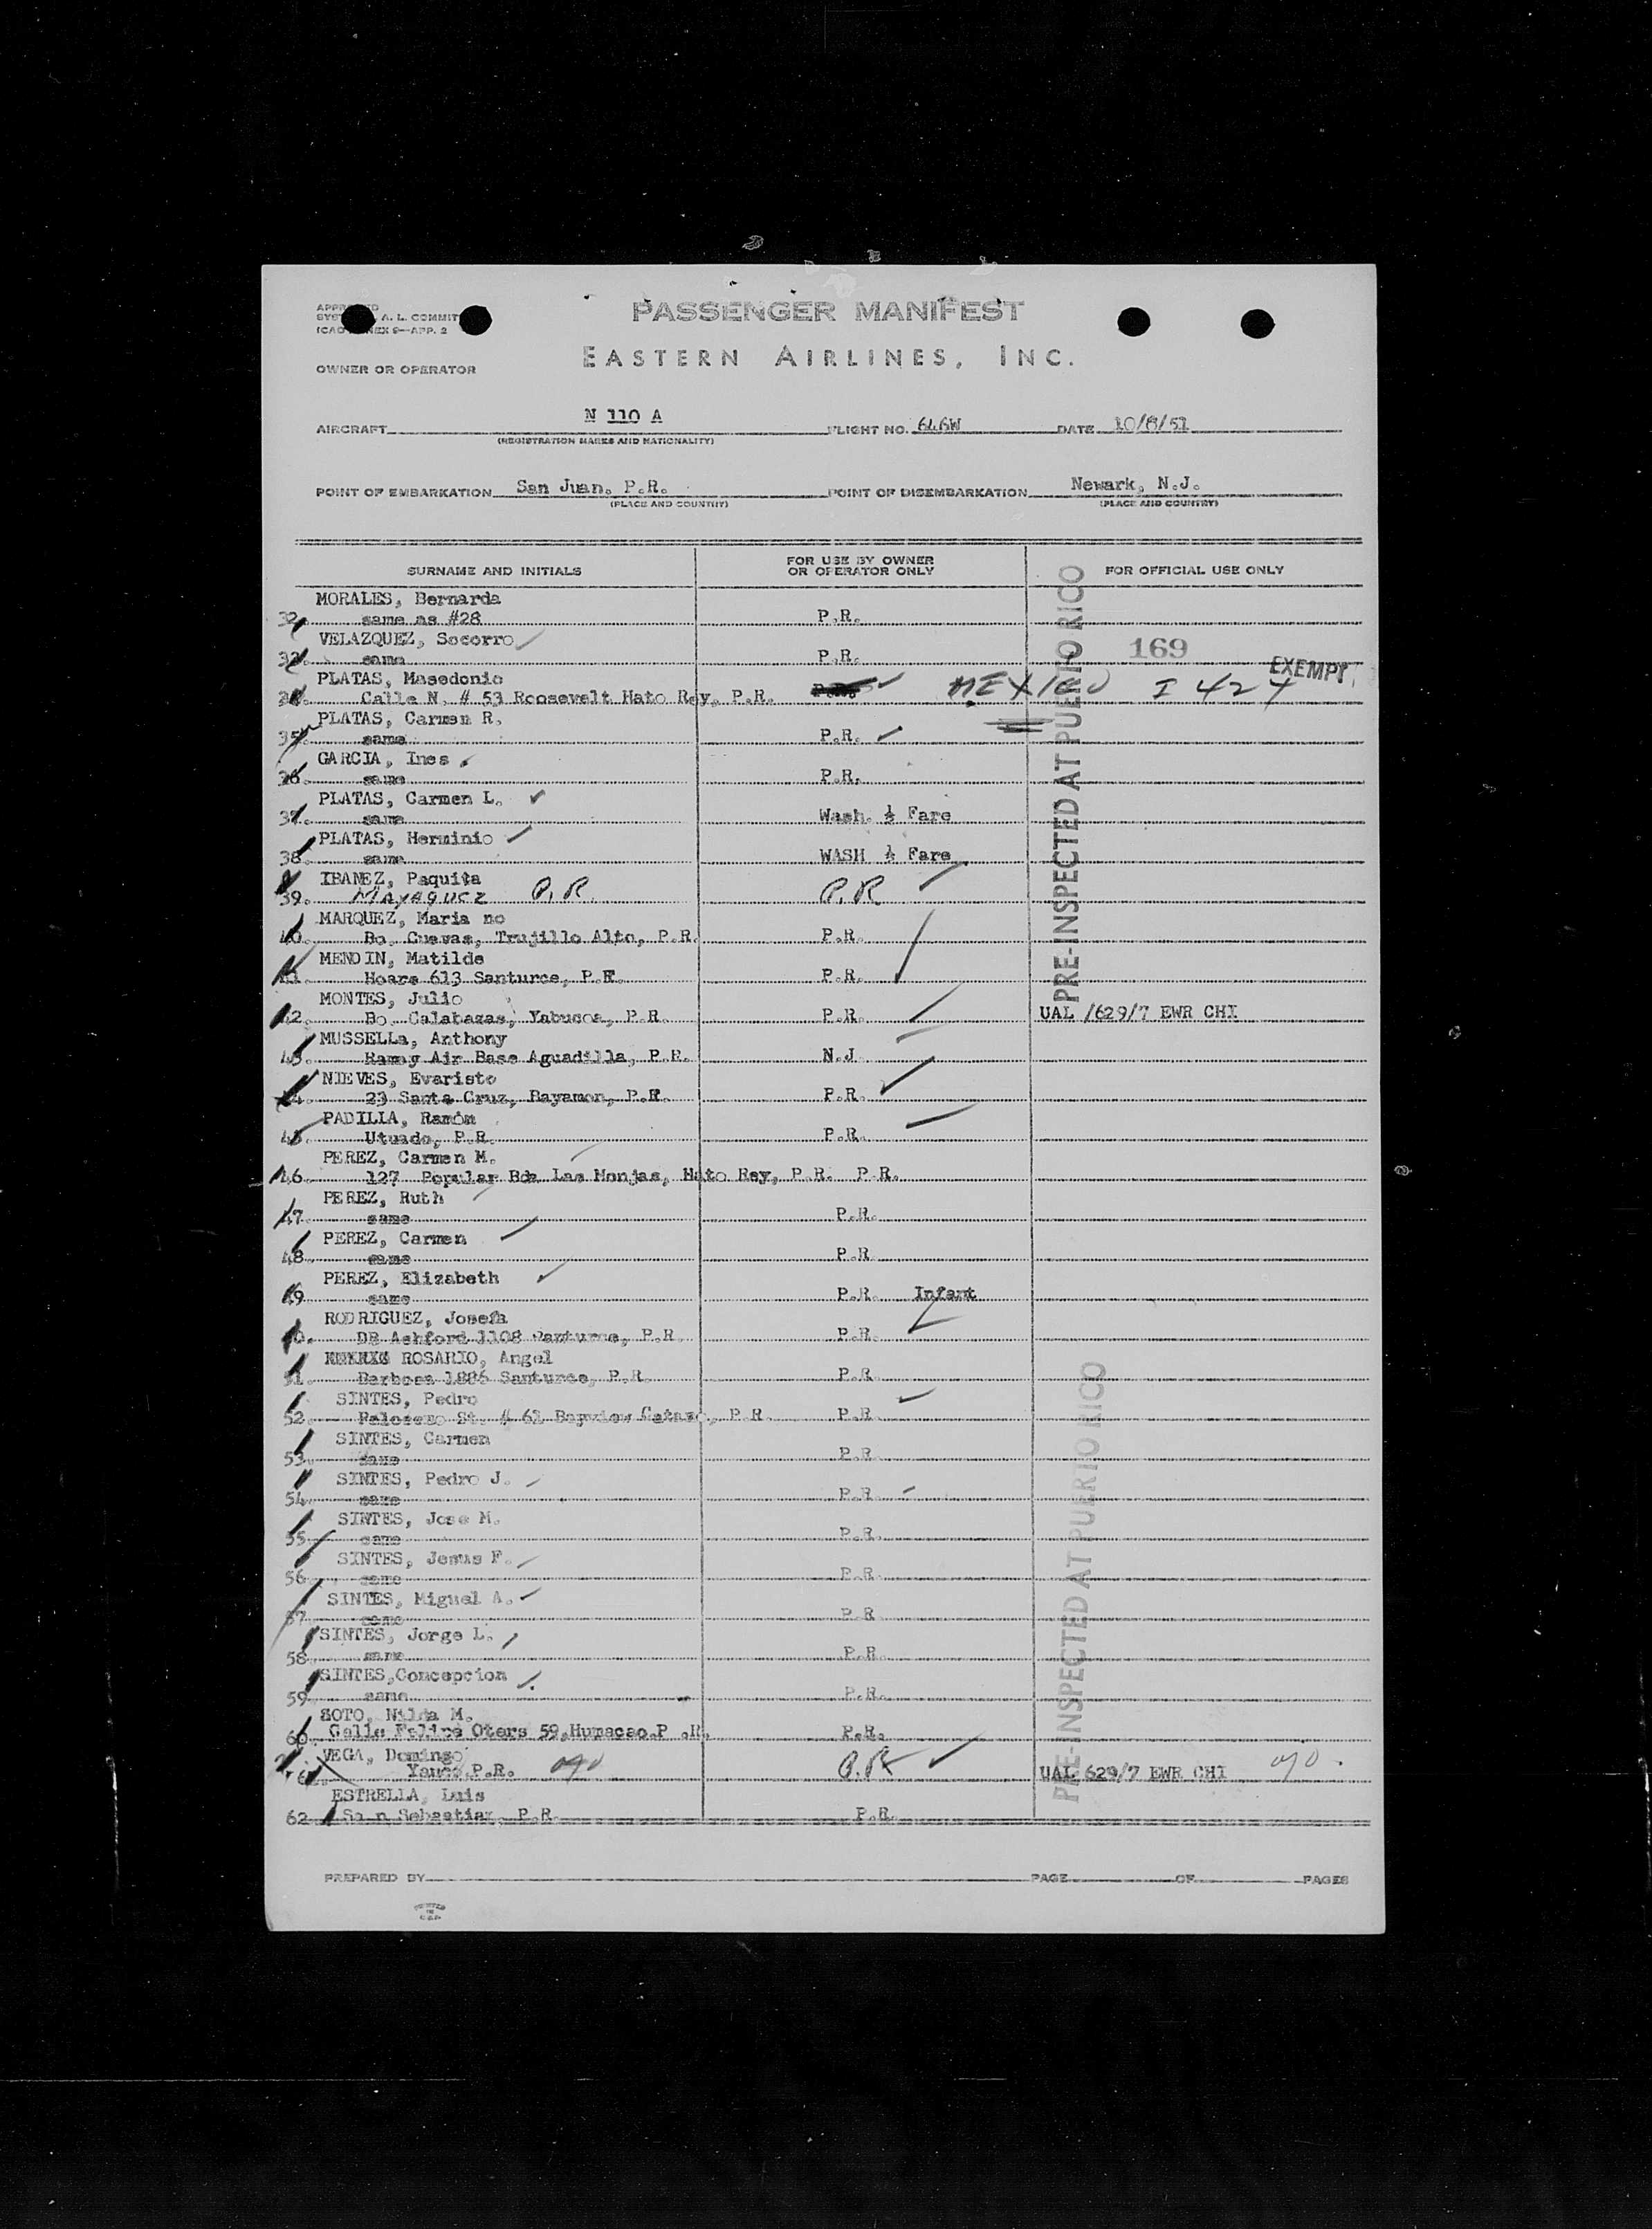 PASSENGER MANIFEST
EASTERN AIRLINES, INC.
ICAO ANNEX 9—APP. 2
OWNER OR OPERATOR
AIRCRAFT N 110 A FLIGHT NO. 646W DATE 10/8/51
(REGISTRATION MARKS AND NATIONALITY)
POINT OF EMBARKATION San Juan. P.R. POINT OF DISEMBARKATION Newark, N.J.
(PLACE AND COUNTRY) (PLACE AND COUNTRY)
SURNAME AND INITIALS FOR USE BY OWNER OR OPERATOR ONLY FOR OFFICIAL USE ONLY
MORALES, Bernarda
32. same as #28 P.R.
VELAZQUEZ, Socorro
33. same P.R. 169
PLATAS, Masedonio EXEMPT
34. Calle N. # 53 Roosevelt Hato Rey, P.R. MEXICO I 424
PLATAS, Carmen R.
35. same P.R.
GARCIA, Ines
36. same P.R.
PLATAS, Carmen L.
37. same Wash. ½ Fare
PLATAS, Herminio
38. same WASH ½ Fare
IBANEZ, Paquita
39. MAYAGUEZ P.R. P.R.
MARQUEZ, Maria no
40. Bo. Cuevas, Trujillo Alto, P.R. P.R.
MENDIN, Matilde
41. Hoare 613 Santurce, P.R. P.R.
MONTES, Julio
42. Bo. Calabazas, Yabucoa, P.R. P.R. UAL /629/7 EWR CHI
MUSSELLa, Anthony
43. Ramey Air Base Aguadilla, P.R. N.J.
NIEVES, Evaristo
44. 23 Santa Cruz, Bayamon, P.R. P.R.
PADILLA, Ramón
45. Utuado, P.R. P.R.
PEREZ, Carmen M.
46. 127 Popular Bda Las Monjas, Hato Rey, P.R. P.R.
PEREZ, Ruth
47. same P.R.
PEREZ, Carmen
48. same P.R.
PEREZ, Elizabeth
49 same P.R. Infant
RODRIGUEZ, Josefa
50. DR Ashford 1108 Santurce, P.R. P.R.
ROSARIO, Angel
51. Barbosa 1886 Santurce, P.R. P.R.
SINTES, Pedro
52. St. # 61 Bayview Cataño, P.R. P.R.
SINTES, Carmen
53. same P.R.
SINTES, Pedro J.
54. same P.R.
SINTES, Jose M.
55. same P.R.
SINTES, Jesus F.
56. same P.R.
SINTES, Miguel A.
57. same P.R.
SINTES, Jorge L.
58. same P.R.
SINTES,Concepcion
59. same P.R.
SOTO, Nilda M.
60. Calle Felipe Oters 59,Humacao.P .R. P.R.
VEGA, Domingo
61. Yauco.P.R. P.R. UAL 629/7 EWR CHI
ESTRELLA, Luis
62. Sa n Sebastian, P.R. P.R.
PRE-INSPECTED AT PUERTO RICO
PRE-INSPECTED AT PUERTO RICO
PREPARED BY PAGE OF PAGES
PRINTED
IN
U.S.A.